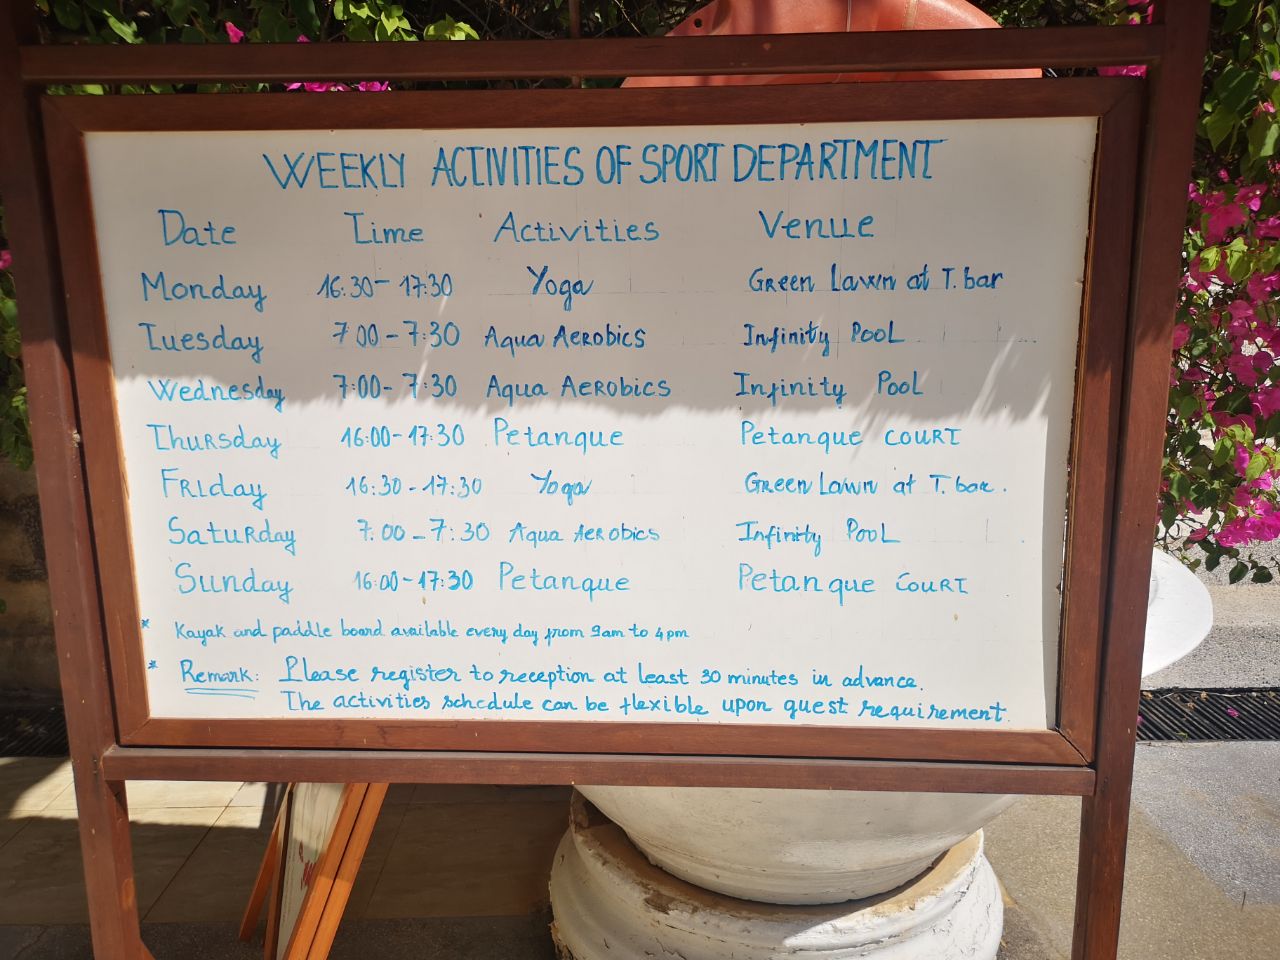 WEEKLY ACTIVITIES OF SPORT DEPARTMENT
Date Time Activities Venue
Monday 16:30 - 17:30 Yoga Green Lawn at T. bar
Tuesday 7:00 - 7:30 Aqua Aerobics Infinity Pool
Wednesday 7:00 - 7:30 Aqua Aerobics Infinity Pool
Thursday 16:00 - 17:30 Petanque Petanque Court
Friday 16:30 - 17:30 Yoga Green Lawn at T. bar.
Saturday 7:00 - 7:30 Aqua Aerobics Infinity Pool
Sunday 16:00 - 17:30 Petanque Petanque Court
* Kayak and paddle board available every day from 9am to 4pm
* Remark: Please register to reception at least 30 minutes in advance.
The activities schedule can be flexible upon guest requirement.